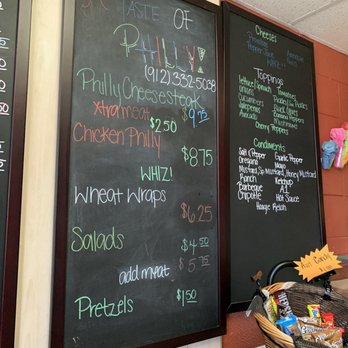 A TASTE OF
PHILLY!
(912) 332-5038
Philly Cheesesteak
$9.75
Xtra meat $2.50
Chicken Philly
$8.75
WHIZ!
Wheat Wraps
$6.25
Salads
$4.50
add meat $5.75
Pretzels
$1.50
Cheeses
Provolone
American
Pepper Jack
WHIZ!!
Toppings
lettuce/Spinach Tomatoes
Onions
Cucumbers
Jalapenos Black Olives
Banana Peppers
Avocado Mushrooms
Cherry Peppers
Condiments
Salt & Pepper Garlic Pepper
Oregano Mayo
Mustard, Sp. Mustard, Honey Mustard
Ranch Ketchup
Barbeque A.1.
Chipotle Hot Sauce
Hoagie Relish